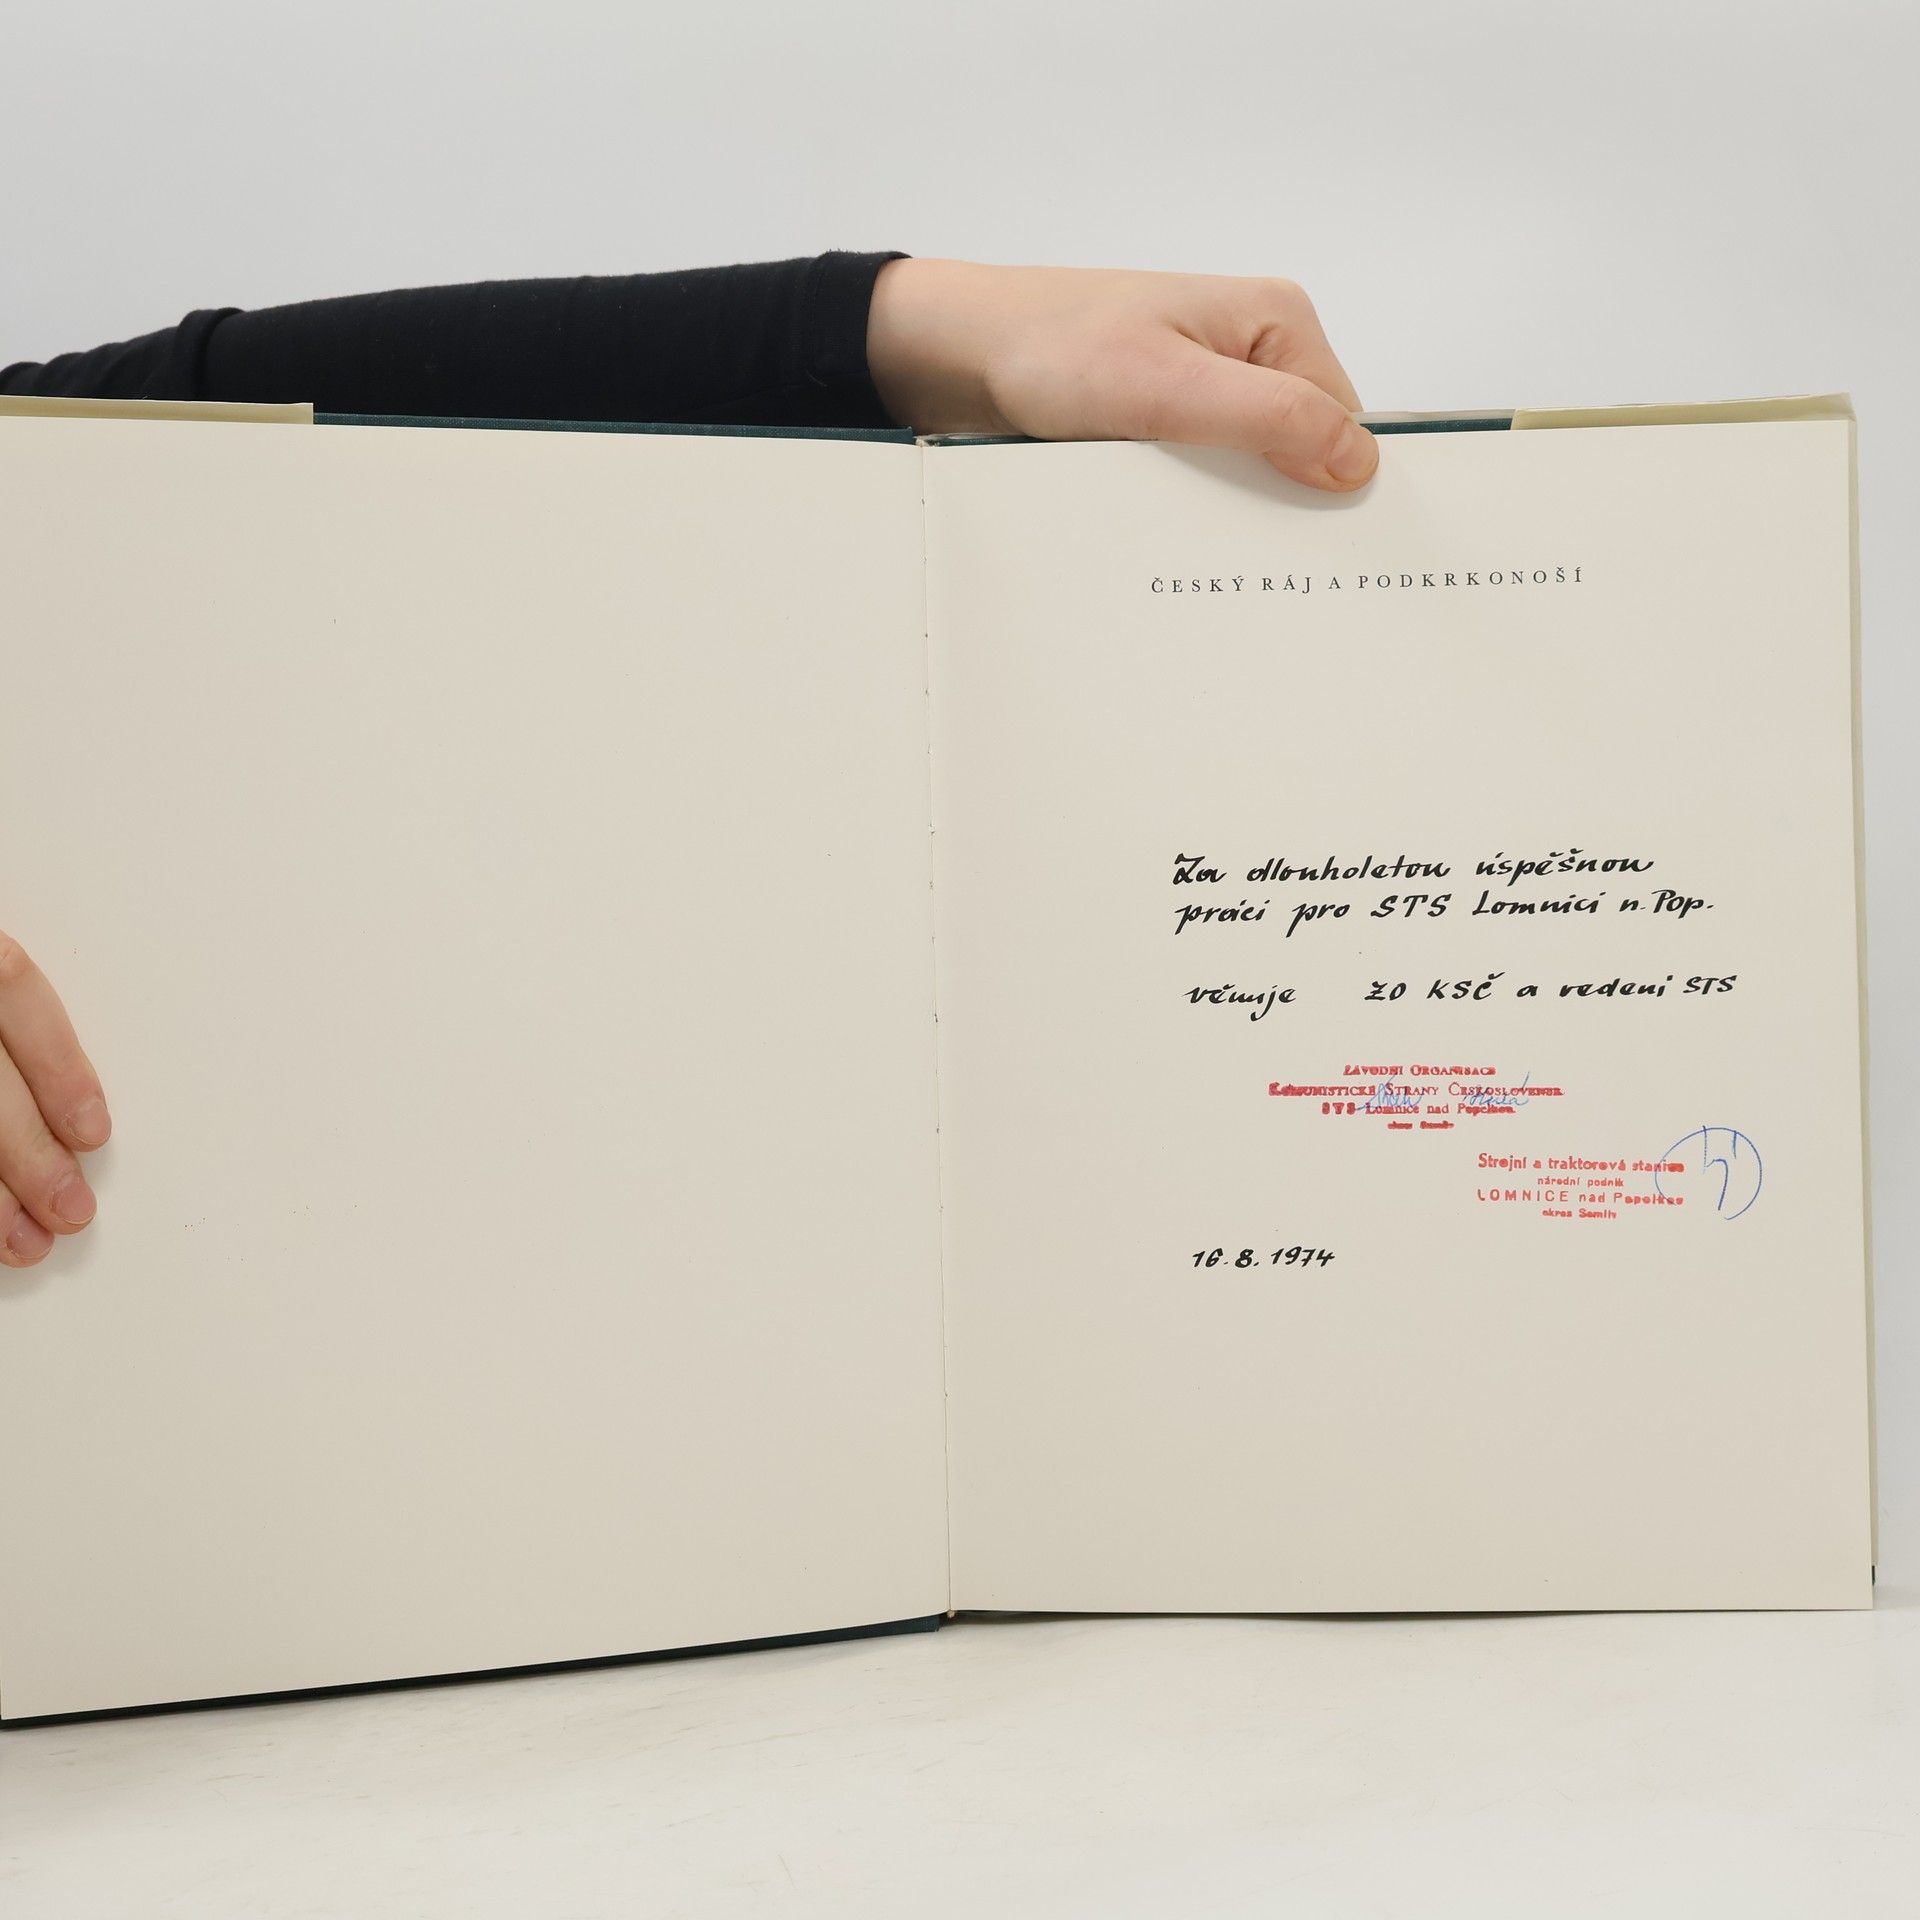 ČESKÝ RÁJ A PODKRKONOŠÍ
Za dlouholetou úspěšnou
práci pro STS Lomnici n. Pop.
věnuje ZO KSČ a vedení STS
ZÁVODNÍ ORGANISACE
KOMUNISTICKÉ STRANY ČESKOSLOVENSK
STS Lomnice nad Popelkou
okres Semily
Strojní a traktorová stanice
národní podnik
LOMNICE nad Popelkou
okres Semily
16. 8. 1974